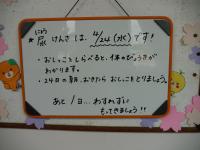 にょう
★尿けんさは、4/24(水)です!
・おしっこをしらべると、体のびょうきが
わかります。
・24日の朝、おきたらおしっこをとりましょう。
あと1日…わすれずに
もってきましょう!!